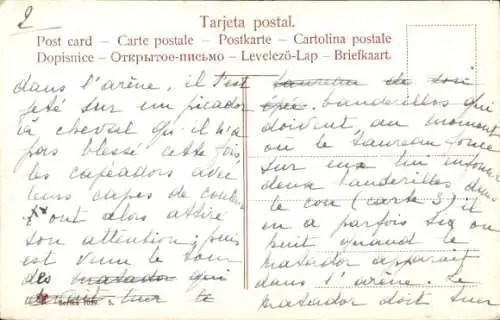 2
Tarjeta postal.
Post card – Carte postale – Postkarte – Cartolina postale
Dopisnice – Открытое-письмо – Levelező-Lap – Briefkaart.
dans l'arène, il s'est
jeté sur un picador
à cheval qu'il n'a
pas blessé cette fois,
les capéadors avec
leurs capes de couleurs
ont alors attiré
son attention; puis
est venu le tour
des matador qui
devait tuer le
taureau de son
épée. banderillos qui
doivent, au moment
où le taureau fonce
sur eux lui enfoncer
deux banderilles dans
le cou (carte 3) il
en a parfois six ou
huit quand le
matador apparait
dans l'arène. Le
matador doit sur